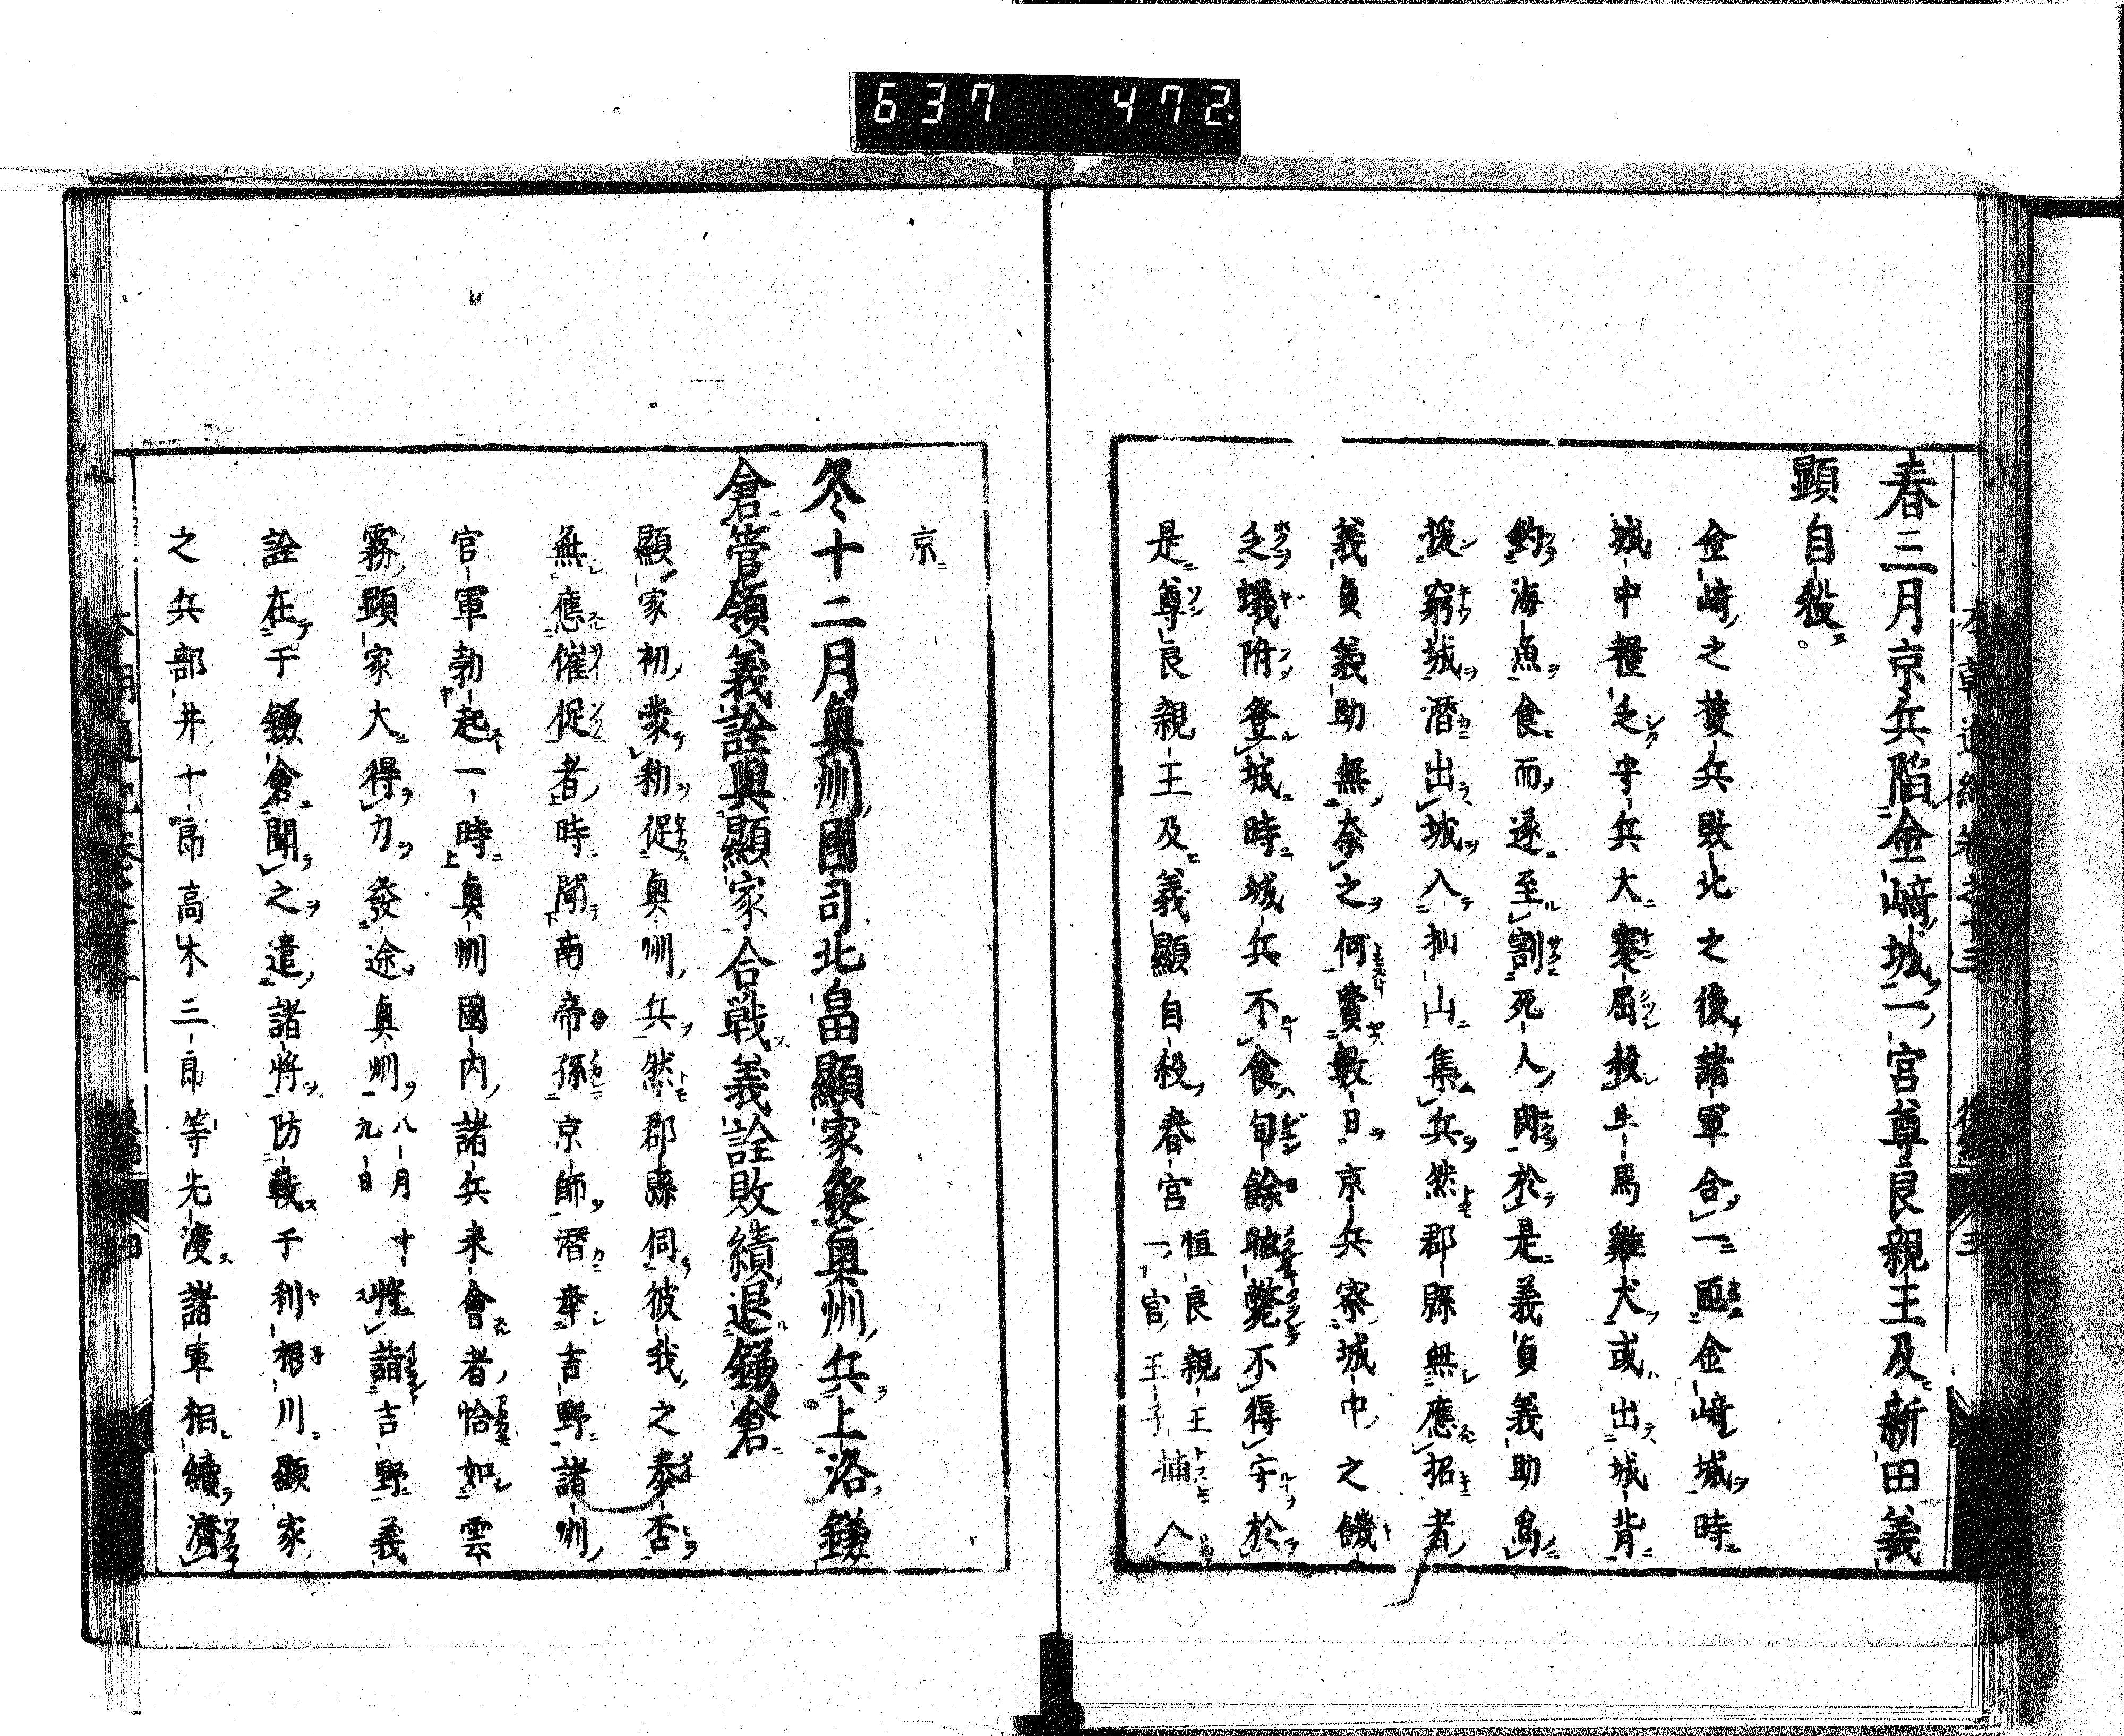 637 472
春三月京兵陷金﨑城一宮尊良親王及新田義
顯自殺
金﨑之援兵敗北之後諸軍合一匝金﨑城時
城中糧乏守兵大寒屈殺牛馬雞犬或出城背
釣海魚食而遂至割死人肉於是義貞義助爲
援窮城潛出城入杣山集兵然郡縣無應招者
義貞義助無奈之何費數日京兵察城中之饑
乏蟻附登城時城兵不食旬餘眩斃不得守於
是尊良親王及義顯自殺春宮恒良親王一宮王子捕入
京
冬十二月奥州國司北畠顯家發奥州兵上洛鎌
倉管領義詮與顯家合戦義詮敗績退鎌倉
顯家初蒙勅促奥州兵然郡縣伺彼我之泰否
無應催促者時聞南帝孫京師潛幸吉野諸州
官軍勃起一時奥州國内諸兵来會者恰如雲
霧顯家大得力發途奥州八月十九日將詣吉野義
詮在于鎌倉聞之遣諸將防戦于利根川顯家
之兵部井十郎高木三郎等先渡諸軍相續濟